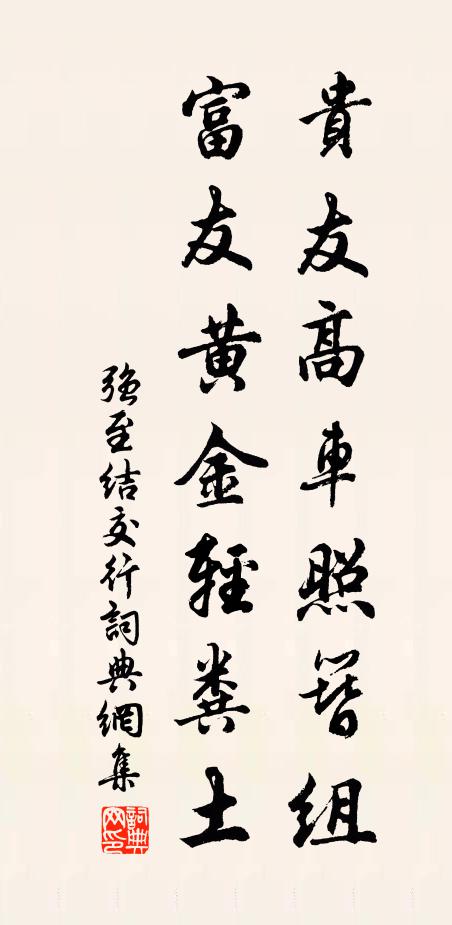 貴友高車照簪組
富友黃金輕糞土
強至結交行詞典網集
詞典網印